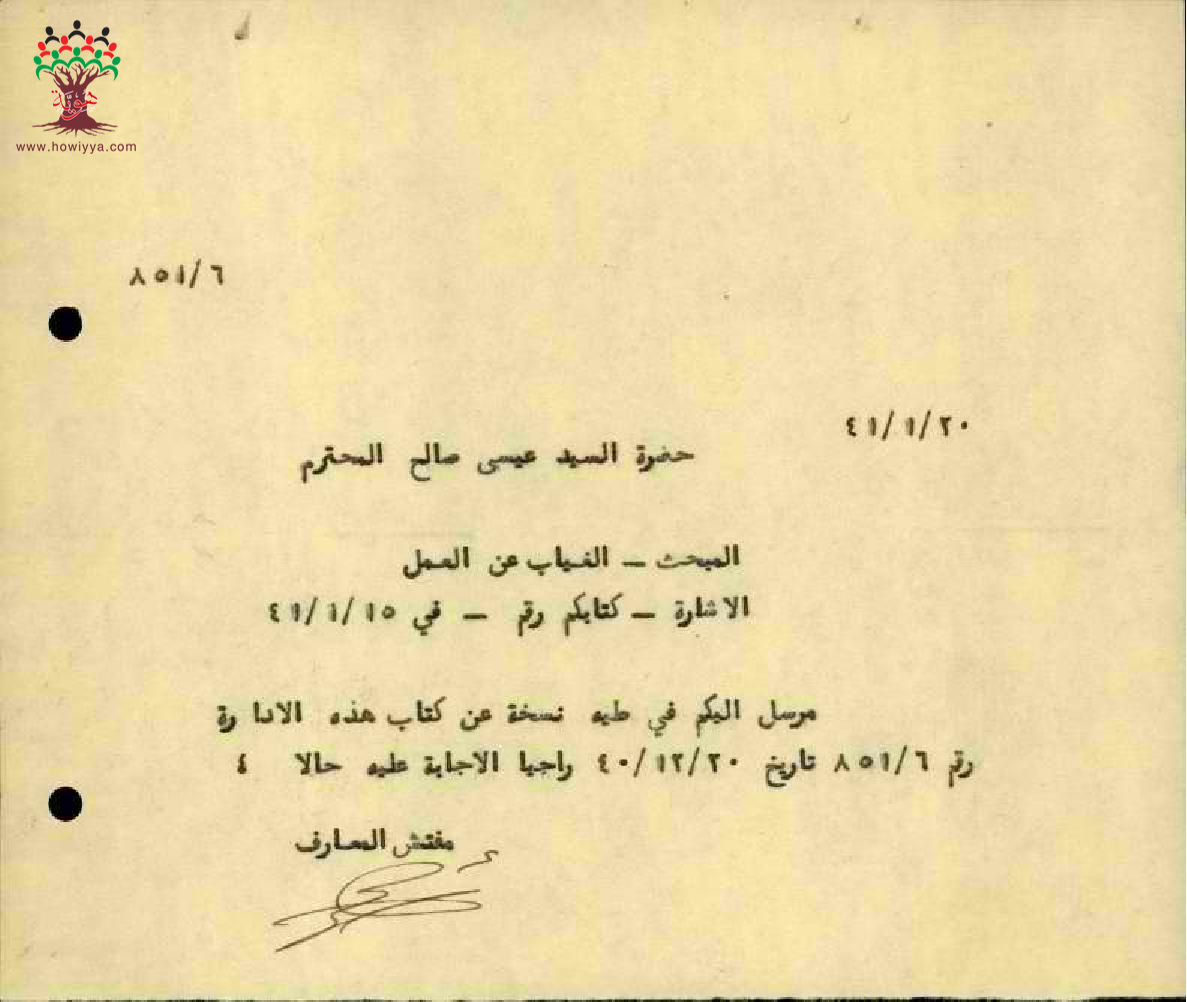 هوية
www.howiyya.com
٨٥١/٦
٤١/١/٢٠
حضرة السيد عيسى صالح المحترم
المبحث – الغياب عن العمل
الاشارة – كتابكم رقم – في ٤١/١/١٥
مرسل اليكم في طيه نسخة عن كتاب هذه الادارة
رقم ٨٥١/٦ تاريخ ٤٠/١٢/٢٠ راجيا الاجابة عليه حالا ٤
مفتش المعارف